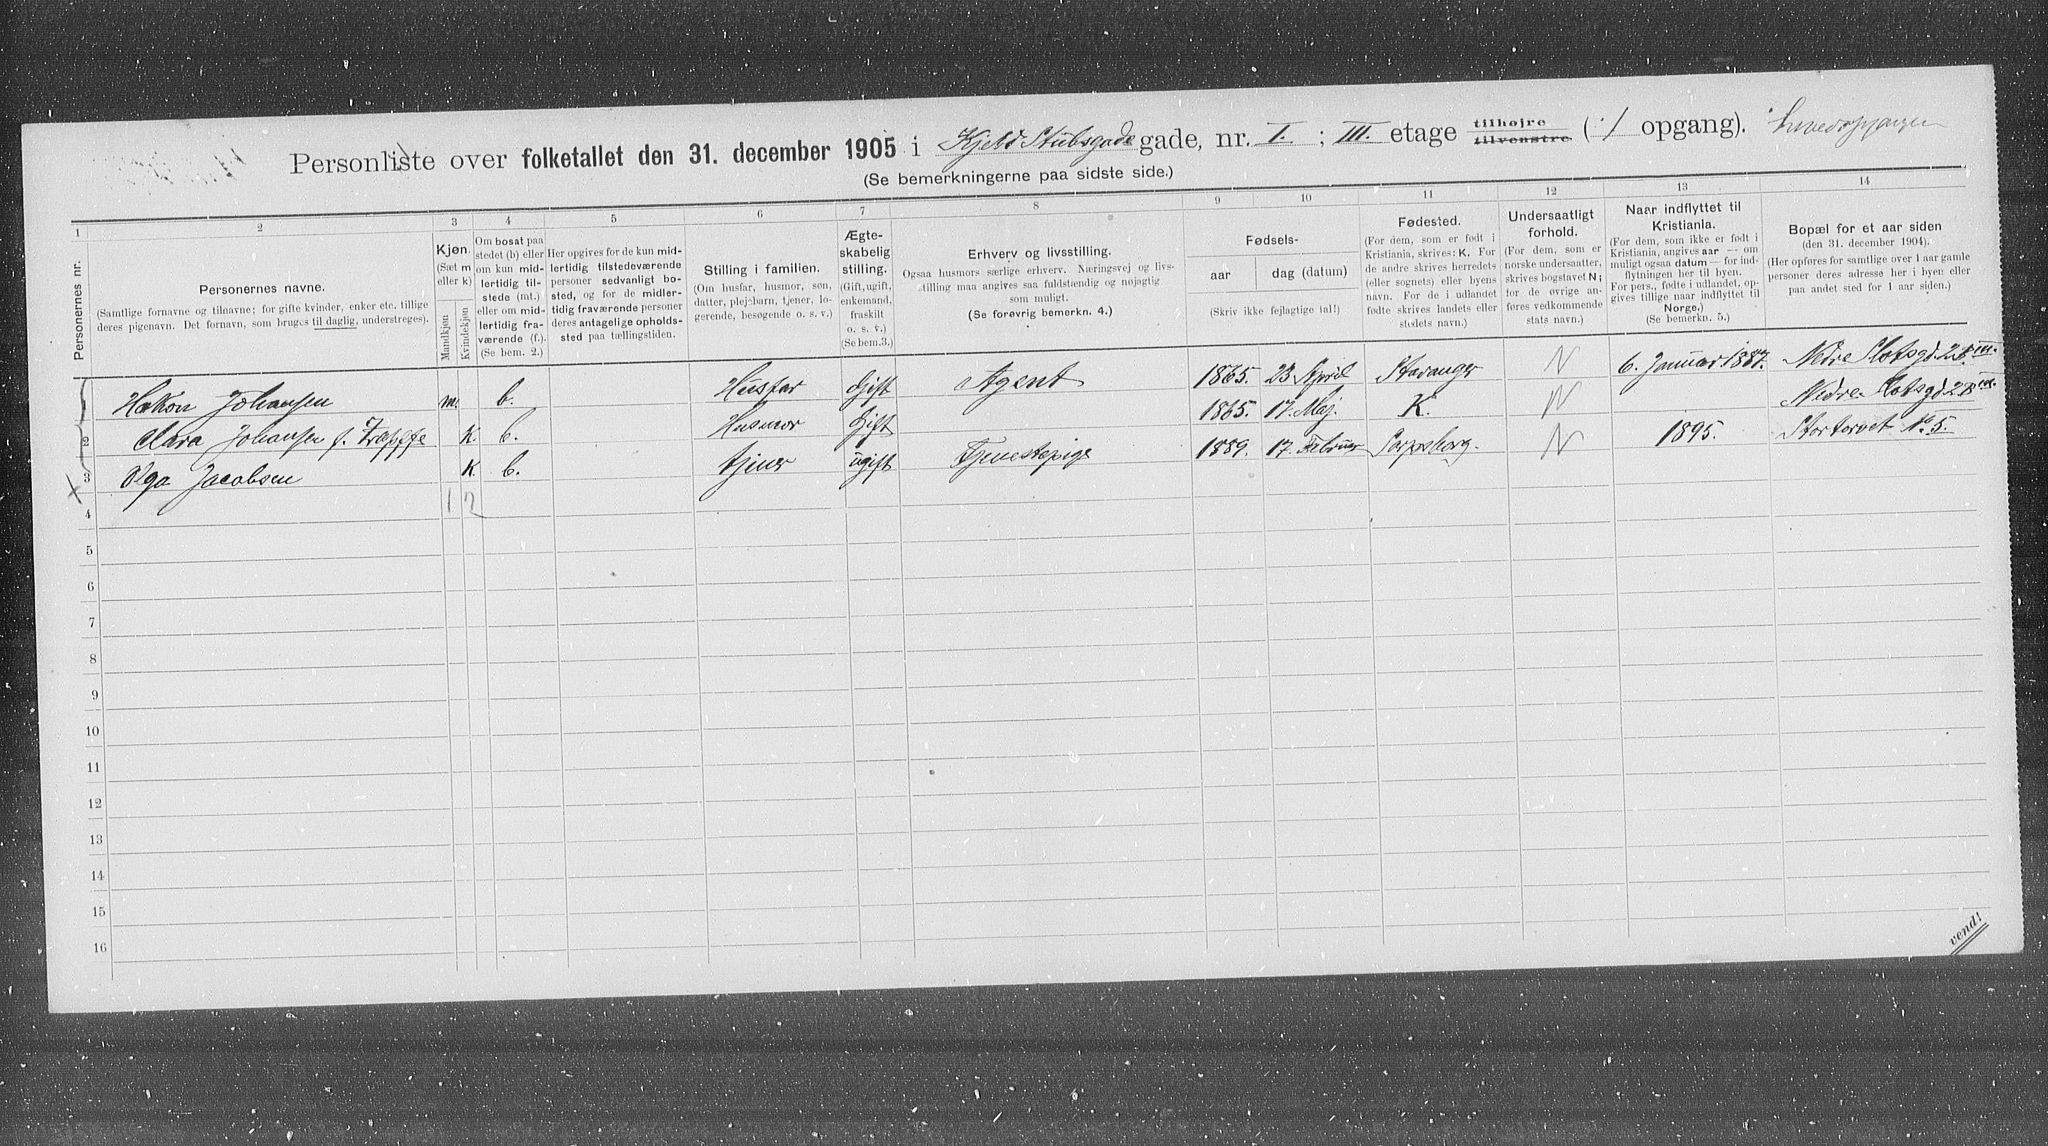 Personliste over folketallet den 31. december 1905 i Kjeld Stubsgade gade, nr. I. ; III. etage tilhøjre tilvenstre ( ·/ opgang).
(Se bemerkningerne paa sidste side.)
1 2 3 4 5 6 7 8 9 10 11 12 13 14
Personernes nr.
Personernes navne.
(Samtlige fornavne og tilnavne; for gifte kvinder, enker etc. tillige deres pigenavn. Det fornavn, som bruges til daglig, understreges).
Kjøn.
(Sæt m eller k)
Mandkjøn
Kvindekjøn
Om bosat paa stedet (b) eller om kun midlertidig tilstede (mt.) eller om midlertidig fraværende (f.). (Se bem. 2.)
Her opgives for de kun midlertidig tilstedeværende personer sedvanligt bosted, og for de midlertidig fraværende personer deres antagelige opholdssted paa tællingstiden.
Stilling i familien.
(Om husfar, husmor, søn, datter, plejebarn, tjener, logerende, besøgende o. s. v.)
Ægteskabelig stilling.
(Gift, ugift, enkemand, fraskilt o. s. v.) (Se bem. 3.)
Erhverv og livsstilling.
Ogsaa husmors særlige erhverv. Næringsvej og livsstilling maa angives saa fuldstændig og nøjagtig som muligt.
(Se forøvrig bemerkn. 4.)
Fødsels-
aar
dag (datum)
(Skriv ikke fejlagtige tal!)
Fødested.
(For dem, som er født i Kristiania, skrives: K. For de andre skrives herredets (eller sognets) eller byens navn. For de i udlandet fødte skrives landets eller stedets navn.)
Undersaatligt forhold.
(For dem, som er norske undersaatter, skrives bogstavet N; for de øvrige anføres vedkommende stats navn.)
Naar indflyttet til Kristiania.
(For dem, som ikke er født i Kristiania, angives aar — om muligt ogsaa datum — for indflytningen her til byen. For pers., fødte i udlandet, opgives tillige naar indflyttet til Norge.)
(Se bemerkn. 5.)
Bopæl for et aar siden
(den 31. december 1904).
(Her opføres for samtlige over 1 aar gamle personer deres adresse her i byen eller paa andet sted for 1 aar siden.)
1 Hakon Johansen m. b. Husfar Gift Agent 1865. 23 April Stavanger N 6. Januar 1887. Nedre Slotsgd. 2B III.
2 Clara Johansen f. K. b. Husmor Gift 1865. 17. Maj. K. N Nedre Slotsgd 2B III.
3 Olga Jacobsen K. b. tjener ugift Tjenestepige 1889. 17. Februar Sarpsborg. N 1895. Stortorvet No 5.
1 2
4
5
6
7
8
9
10
11
12
13
14
15
16
vend!